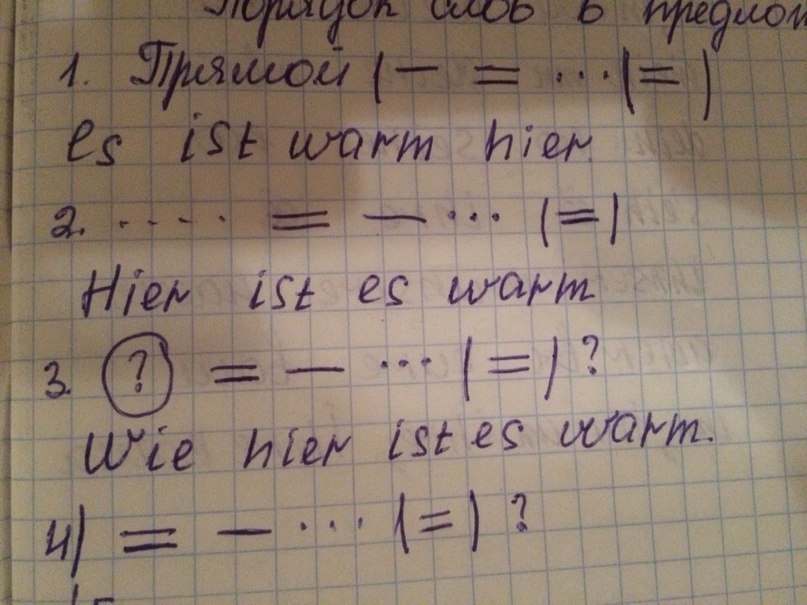 Порядок слов в предлож
1. Прямой (— = ...(=)
es ist warm hier
2. ..... = — ... (=)
Hier ist es warm
3. ? = — ... (=) ?
Wie hier ist es warm.
4) = — ... (=) ?